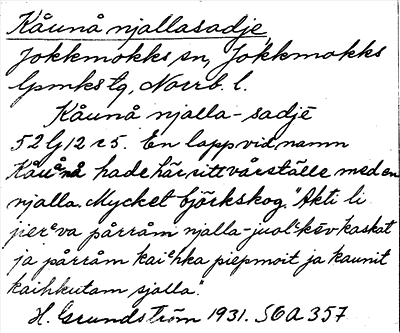 Kåunå njallasadje,
Jokkmokks sn, Jokkmokks
lpmks tg, Norrb. l.
Kåunå njalla-sadjē
52 G 12 r 5. En lapp vid namn
Kåunå hade här sitt vårställe med en
njalla. Mycket björkskog. "Akti li
jierᵉva pårråm njalla-juolᵏkēv kaskat
ja pårråm kaiᵉhka piepmoit ja kaunit
kaihkutam sjalla".
H. Grundström 1931. SOA 357